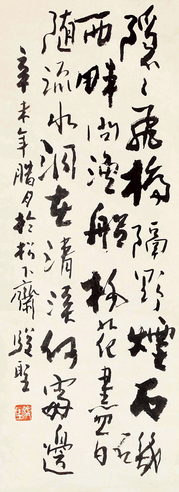 隱々飛橋隔野煙石磯
西畔問漁船桃花盡日
隨流水洞在清溪何處邊
辛未年臘月於松下齋